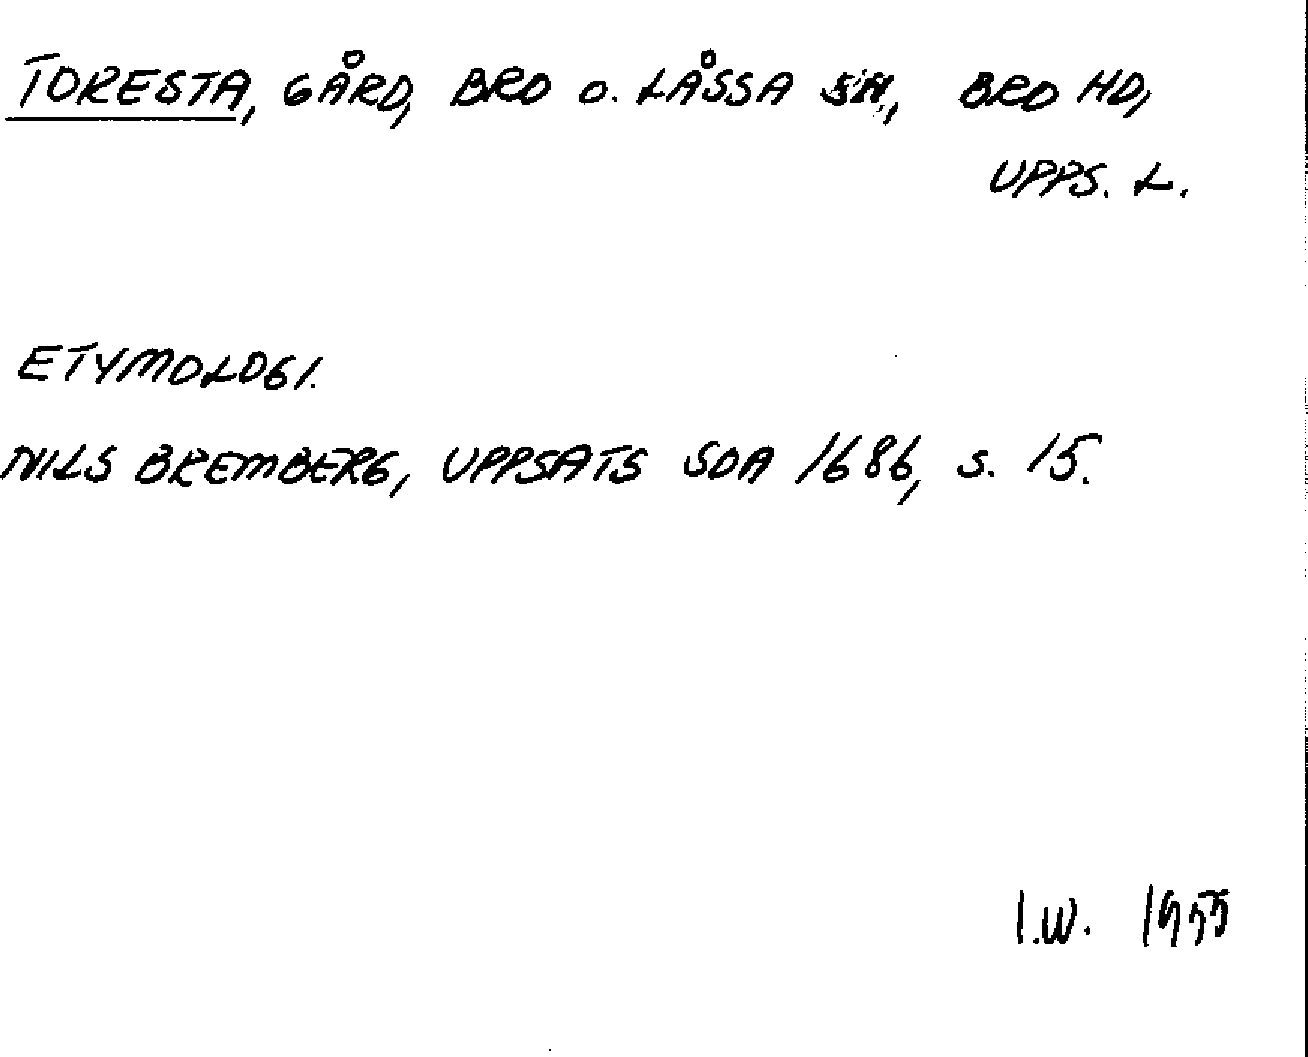 TORESTA, GÅRD, BRO o. LÅSSA SN, BRO HD,
UPPS. L.
ETYMOLOGI.
NILS BREMBERG, UPPSATS SOA 1686, s. 15.
I.W. 1955